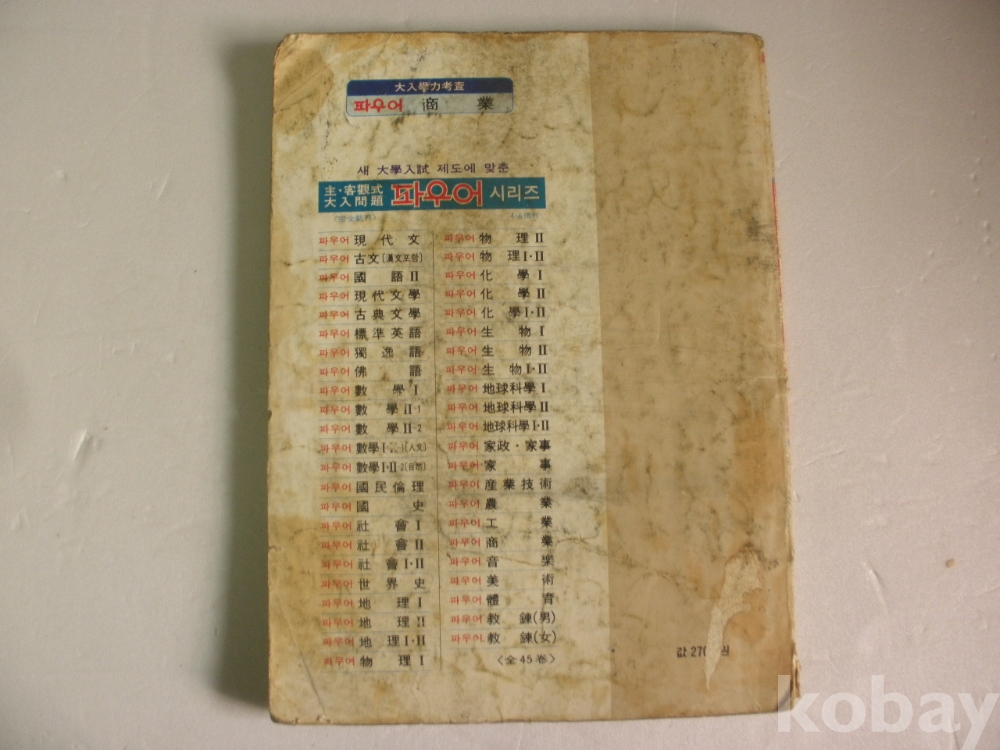 大入學力考査
파우어 商業
새 大學入試 제도에 맞춘
主·客觀式
大入問題 파우어 시리즈
파우어 現代文
파우어 古文(漢文포함)
파우어 國語II
파우어 現代文學
파우어 古典文學
파우어 標準英語
파우어 獨逸語
파우어 佛語
파우어 數學I
파우어 數學II-1
파우어 數學II-2
파우어 數學I·II-1(人文)
파우어 數學I·II-2(自然)
파우어 國民倫理
파우어 國史
파우어 社會I
파우어 社會II
파우어 社會I·II
파우어 世界史
파우어 地理I
파우어 地理II
파우어 地理I·II
파우어 物理I
파우어 物理II
파우어 物理I·II
파우어 化學I
파우어 化學II
파우어 化學I·II
파우어 生物I
파우어 生物II
파우어 生物I·II
파우어 地球科學I
파우어 地球科學II
파우어 地球科學I·II
파우어 家政·家事
파우어 家事
파우어 産業技術
파우어 農業
파우어 工業
파우어 商業
파우어 音樂
파우어 美術
파우어 體育
파우어 敎鍊(男)
파우어 敎鍊(女)
〈全45卷〉
값 270 원
kobay